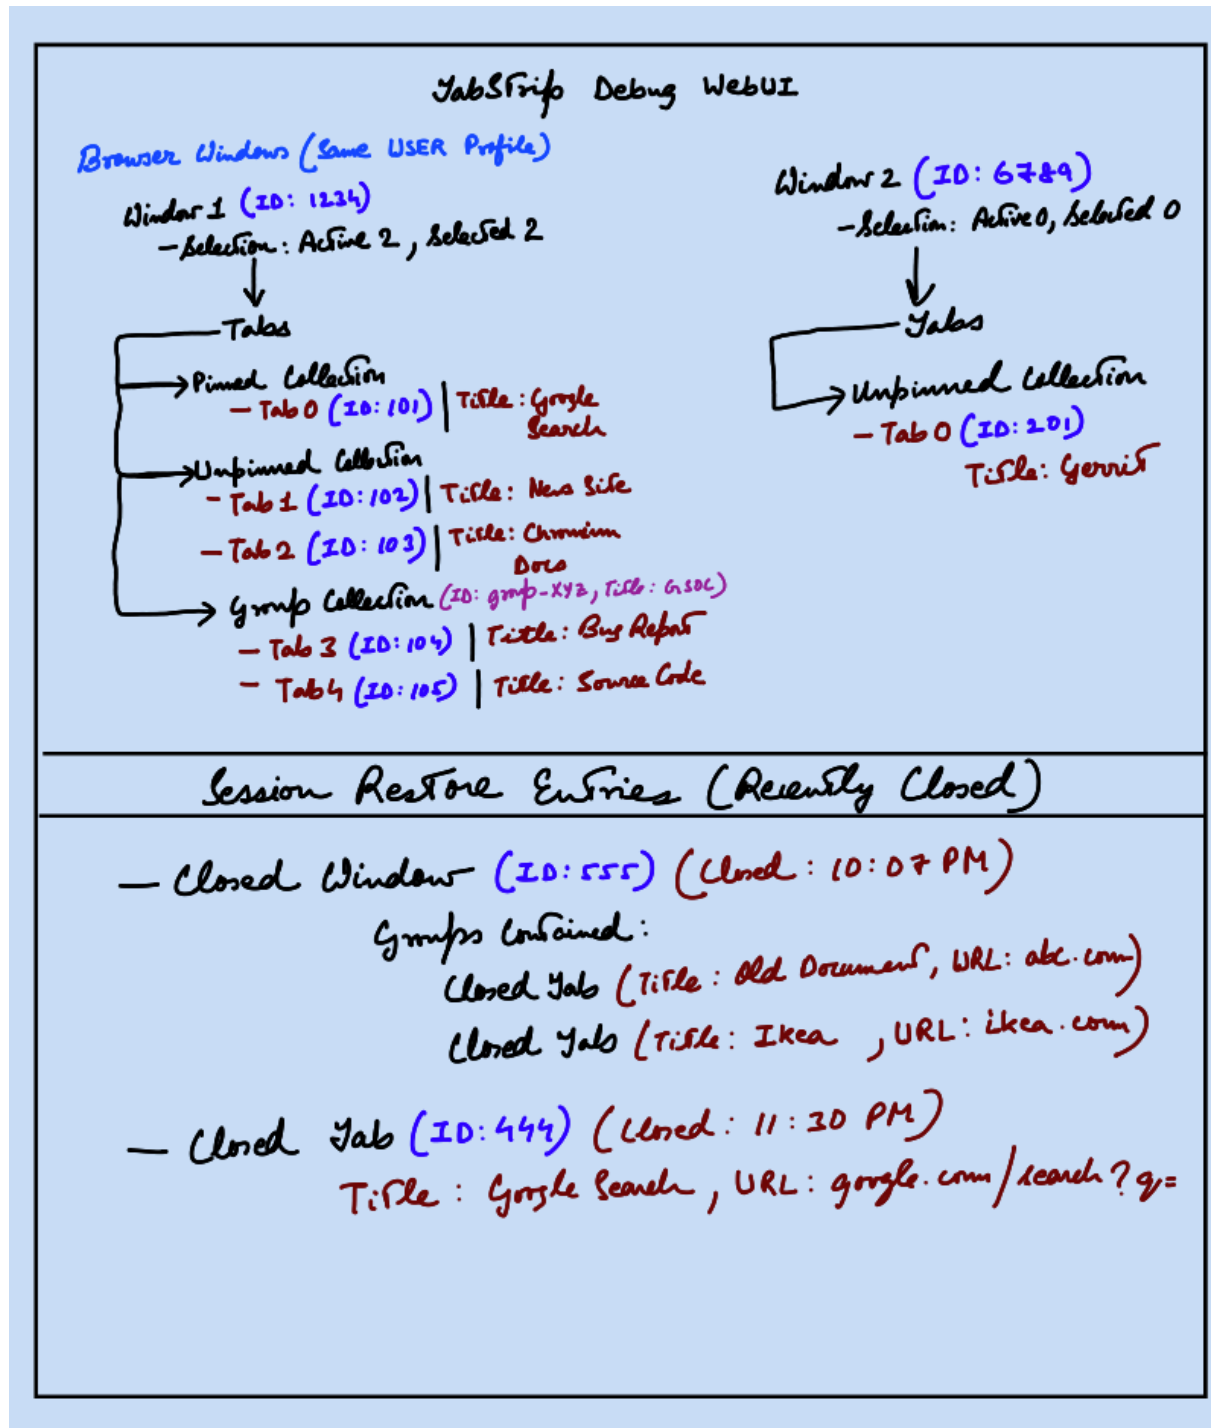 TabStrip Debug WebUI
Browser Windows (Same USER Profile)
Window 1 (ID: 1234)
- Selection: Active 2, Selected 2
Tabs
Pinned Collection
- Tab 0 (ID: 101) | Title: Google
Search
Unpinned Collection
- Tab 1 (ID: 102) | Title: News Site
- Tab 2 (ID: 103) | Title: Chromium
Docs
Group Collection (ID: group-XYZ, Title: GSOC)
- Tab 3 (ID: 104) | Title: Bug Report
- Tab 4 (ID: 105) | Title: Source Code
Window 2 (ID: 6789)
- Selection: Active 0, Selected 0
Tabs
Unpinned Collection
- Tab 0 (ID: 201)
Title: Gerrit
Session Restore Entries (Recently Closed)
- Closed Window (ID: 555) (Closed: 10:07 PM)
Groups Contained:
Closed Tab (Title: Old Document, URL: abc.com)
Closed Tab (Title: Ikea, URL: ikea.com)
- Closed Tab (ID: 444) (Closed: 11:30 PM)
Title: Google Search, URL: google.com/search?q=